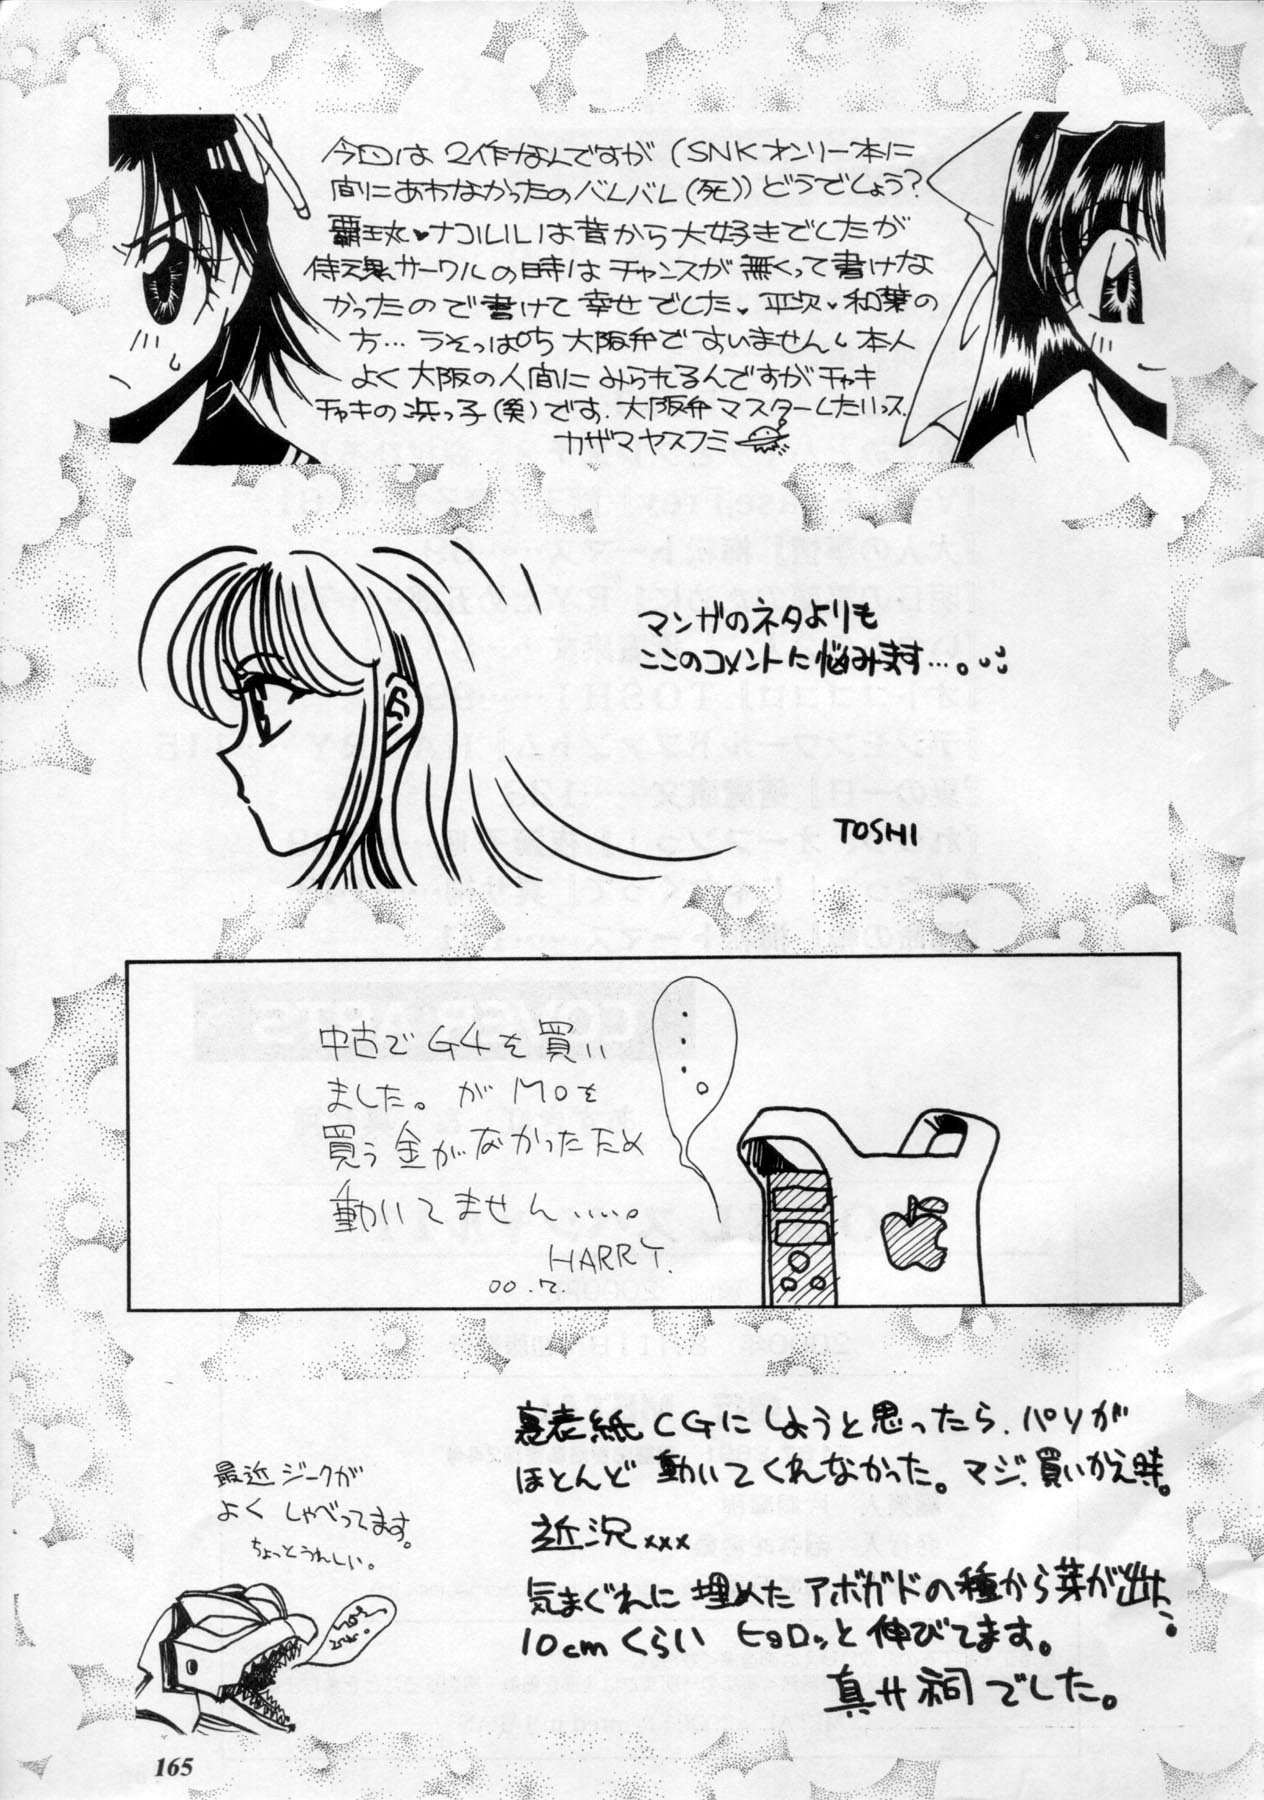 今回は2作なんですが(SNKオンリー本に
間にあわなかったのバレバレ(死))どうでしょう?
覇王丸♥ナコルルは昔から大好きでしたが
侍魂サークルの時はチャンスが無くって書けな
かったので書けて幸せでした♥平次♥和葉の
方…うそっぱち大阪弁ですいません。本人
よく大阪の人間にみられるんですがチャキ
チャキの浜っ子(笑)です.大阪弁マスターしたいっス.
カザマヤスフミ
マンガのネタよりも
ここのコメントに悩みます…。
TOSHI
中古でG4を買い
ました。がMOを
買う金がなかったため
動いてません……。
HARRY.
00.7.
裏表紙CGにしようと思ったら、パソが
ほとんど動いてくれなかった。マジ、買いかえ時。
近況xxx
気まぐれに埋めたアボガドの種から芽が出た、
10cmくらいヒョロッと伸びてます。
真井祠でした。
最近ジークが
よくしゃべってます。
ちょっとうれしい。
165